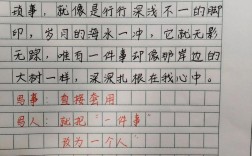 琐事，就像是行行深浅不一的脚
印，岁月的海水一冲，它就无影
无踪，唯有一件事却像那岸边的
大树一样，深深扎根在我心中。
写事：直接套用
写人：就把“一件事”
改为“一个人”